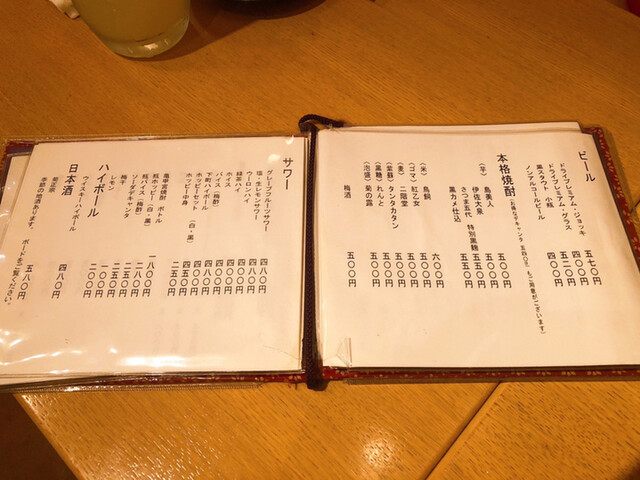 ビール
ドライプレミアム・ジョッキ 五七〇円
ドライプレミアム・グラス 四〇〇円
黒スタウト 小瓶 五二〇円
ノンアルコールビール 四〇〇円
本格焼酎
(お得なデキャンタ 五四〇cc もご用意がございます)
(芋) 島美人 五〇〇円
伊佐大泉 五〇〇円
さつま五代 特別黒麹 五五〇円
黒カメ仕込
(米) 鳥飼 六〇〇円
(ゴマ) 紅乙女 五〇〇円
(麦) 二階堂 五〇〇円
(紫蘇) タンタカタン 五〇〇円
(黒糖) れんと 五〇〇円
(泡盛) 菊の露 五〇〇円
梅酒 五〇〇円
サワー
グレープフルーツサワー 四八〇円
塩・生レモンサワー 四八〇円
ウーロンハイ 四〇〇円
緑茶ハイ 四〇〇円
ホイス 四〇〇円
バイス (梅酢) 四〇〇円
下町ハイボール 四〇〇円
ホッピーセット (白・黒) 四五〇円
ホッピー中身 二五〇円
亀甲宮焼酎 ボトル 一八〇〇円
瓶ホッピー (白・黒) 二八〇円
瓶バイス (梅酢) 二一〇円
ソーダデキャンタ 二五〇円
梅干 一〇〇円
レモン 二〇〇円
ハイボール
ウィスキーハイボール 四八〇円
日本酒
菊正宗 五八〇円
季節の地酒あります。 ボードをご覧ください。